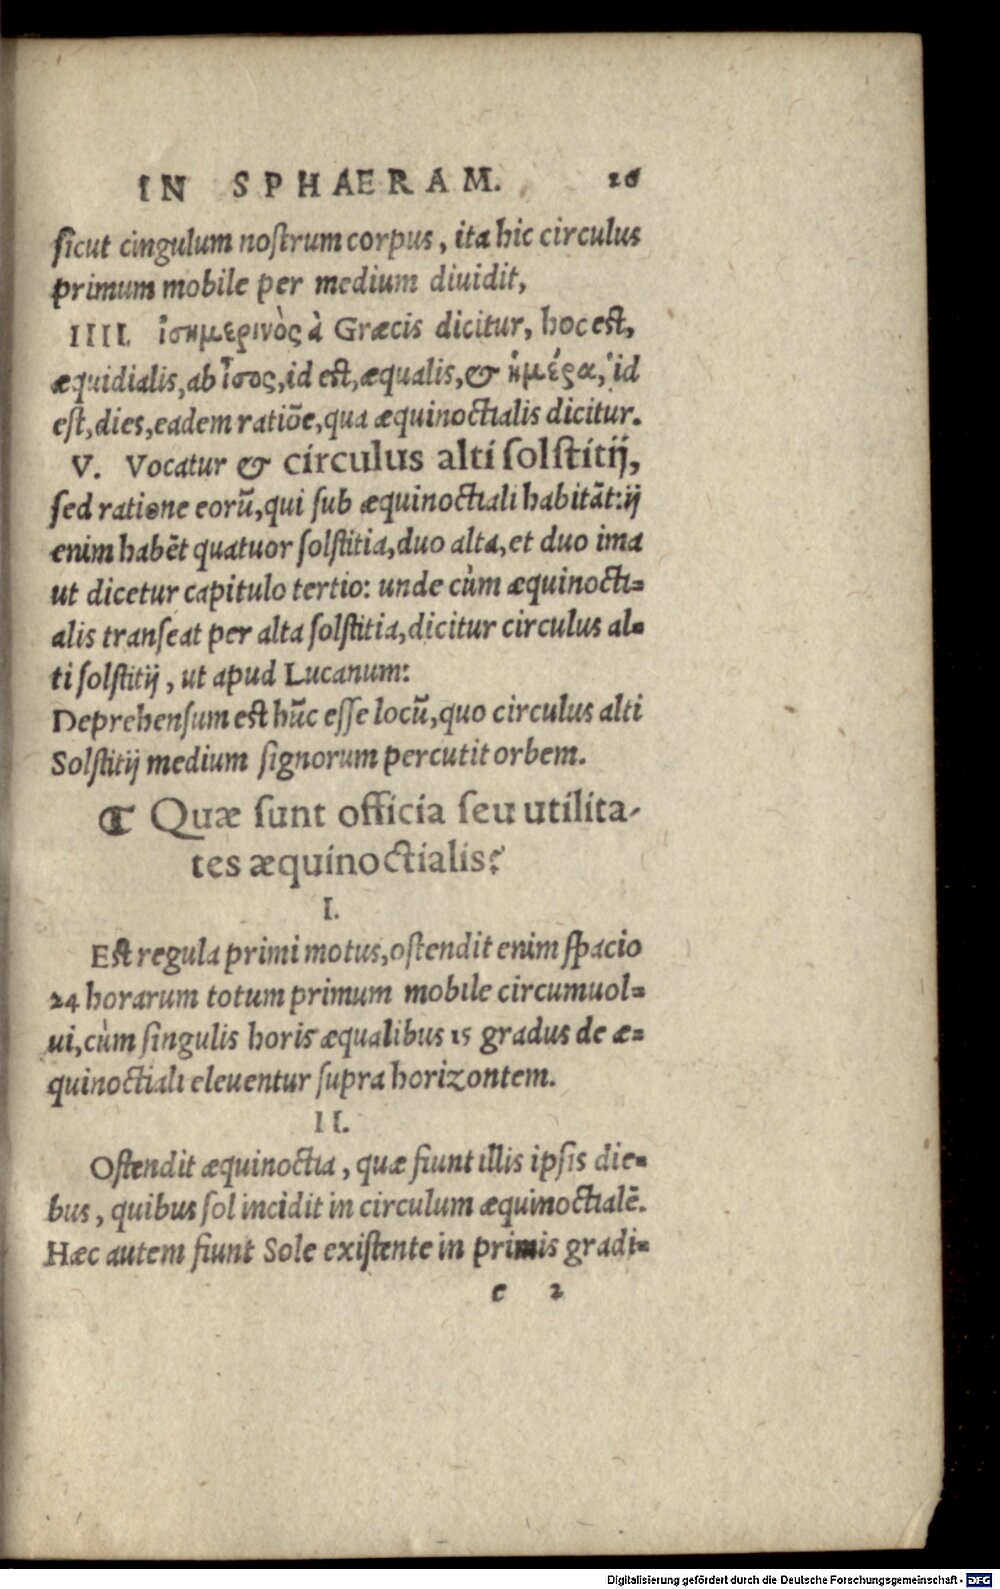 IN SPHAERAM. 26
ſicut cingulum noſtrum corpus, ita hic circulus
primum mobile per medium diuidit,
IIII. ἰσημερινὸς à Græcis dicitur, hoc eſt,
æquidialis, ab ἴσος, id eſt, æqualis, & ἡμέρα, id
eſt, dies, eadem ratiõe, qua æquinoctialis dicitur.
V. Vocatur & circulus alti ſolſtitij,
ſed ratione eorũ, qui ſub æquinoctiali habitãt: ij
enim habẽt quatuor ſolſtitia, duo alta, et duo ima
ut dicetur capitulo tertio: unde cùm æquinocti=
alis tranſeat per alta ſolſtitia, dicitur circulus al=
ti ſolſtitij, ut apud Lucanum:
Deprehenſum eſt hũc eſſe locũ, quo circulus alti
Solſtitij medium ſignorum percutit orbem.
¶ Quæ ſunt officia ſeu utilita-
tes æquinoctialis?
I.
Eſt regula primi motus, oſtendit enim ſpacio
24 horarum totum primum mobile circumuol=
ui, cùm ſingulis horis æqualibus 15 gradus de æ=
quinoctiali eleuentur ſupra horizontem.
II.
Oſtendit æquinoctia, quæ fiunt illis ipſis die=
bus, quibus ſol incidit in circulum æquinoctialẽ.
Hæc autem fiunt Sole exiſtente in primis gradi=
c 2
Digitalisierung gefördert durch die Deutsche Forschungsgemeinschaft - DFG